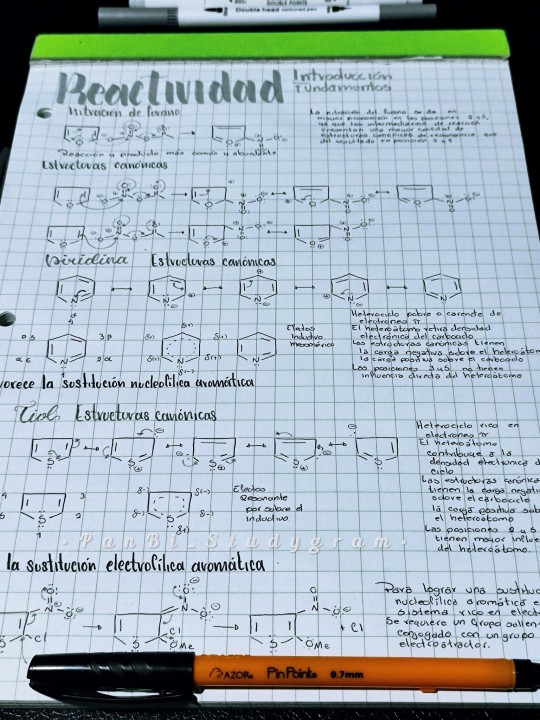 DOUBLE POINTS
Double head coloured pen
Reactividad
Introducción
Fundamentos
Nitración de furano
La nitración del furano se da en
mayor proporción en las posiciones 2 y 5,
ya que los intermediarios de reacción
presentan una mayor cantidad de
estructuras canónicas de resonancia que
del resultado en posición 3 y 4
Reacción y producto más común y abundante
Estructuras canónicas
Piridina Estructuras canónicas
Heterociclo pobre o carente de
electrones π
El heteroátomo retira densidad
electrónica del carbociclo
Las estructuras canónicas tienen
la carga negativa sobre el heteroátom
la carga positiva sobre el carbociclo
Las posiciones 3 y 5 no tienen
influencia directa del heteroátomo
Efectos
Inductivo
mesomérico
vorece la sustitución nucleofílica aromática
Tiol Estructuras canónicas
Heterociclo rico en
electrones π
El heteroátomo
contribuye a la
densidad electrónica d
ciclo
Las estructuras canónica
tienen la carga negativ
sobre el carbociclo
la carga positiva sob
el heteroátomo
Las posiciones 2 y 5
tienen mayor influe
del heteroátomo.
Efectos
Resonante
por sobre el
inductivo
·PanBi_Studygram·
la sustitución electrofílica aromática
Para lograr una sustituc
nucleofílica aromática e
sistema rico en elect
se requiere un grupo salien
conjugado con un grupo
electroatractor.
Cl
Cl
OMe
OMe
+ Cl
RAZOR® PinPointe 0.7mm